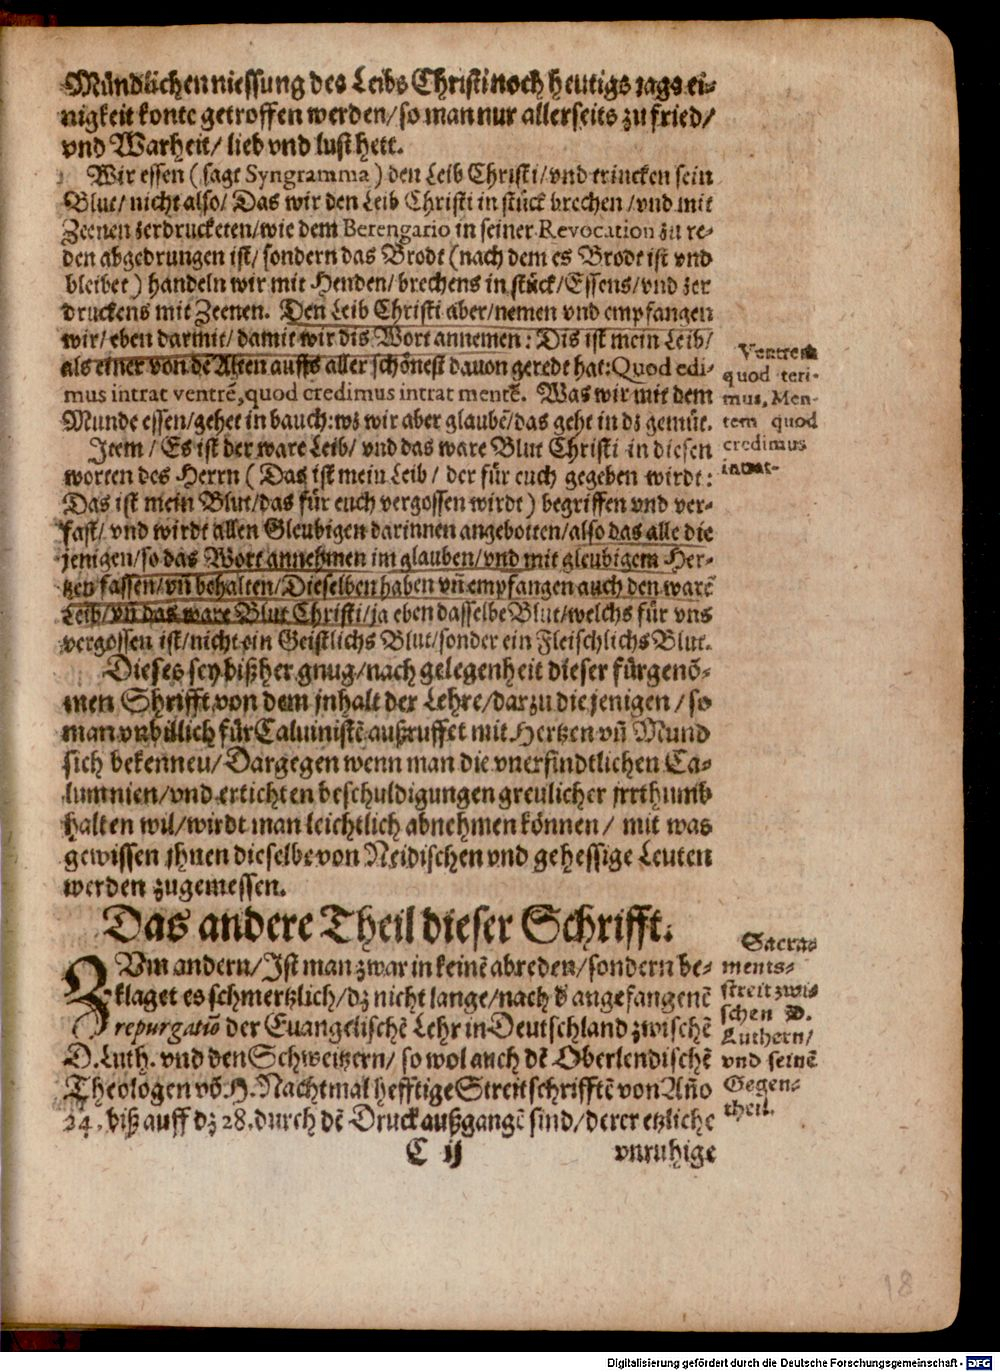 Mündlichen niessung des Leibs Christi noch heutigs tags ei-
nigkeit konte getroffen werden/ so man nur allerseits zu fried/
vnd Warheit/ lieb vnd lust hett.
Wir essen ( sagt Syngramma ) den Leib Christi/ vnd trincken sein
Blut/ nicht also/ Das wir den Leib Christi in stück brechen / vnd mit
Zeenen zerdrucketen/ wie dem Berengario in seiner Revocation zu re-
den abgedrungen ist/ sondern das Brodt (nach dem es Brodt ist vnd
bleibet ) handeln wir mit Henden/ brechens in stück/ Essens/ vnd zer
druckens mit Zeenen. Den Leib Christi aber/ nemen vnd empfangen
wir/ eben darmit/ damit wir dis Wort annemen: Dis ist mein Leib/
als einer von dē Alten auffs aller schönest dauon geredt hat: Quod edi-
mus intrat ventrē, quod credimus intrat mentē. Was wir mit dem
Munde essen/ gehet in bauch: wz wir aber glaubē/ das geht in dz gemüt.
Item / Es ist der ware Leib/ vnd das ware Blut Christi in diesen
worten des Herrn ( Das ist mein Leib / der für euch gegeben wirdt:
Das ist mein Blut/ das für euch vergossen wirdt ) begriffen vnd ver-
fast/ vnd wirdt allen Gleubigen darinnen angebotten/ also das alle die
jenigen/ so das Wort annehmen im glauben/ vnd mit gleubigem Her-
tzen fassen/ vñ behalten/ Dieselben haben vñ empfangen auch den warē
Leib/ vñ das ware Blut Christi/ ja eben dasselbe Blut/ welchs für vns
vergossen ist/ nicht ein Geistlichs Blut/ sonder ein Fleischlichs Blut.
Dieses sey bißher gnug/ nach gelegenheit dieser fürgenō-
men Shrifft von dem jnhalt der Lehre/ darzu die jenigen / so
man vnbillich für Caluinistē außruffet mit Hertzen vñ Mund
sich bekennen/ Dargegen wenn man die vnerfindtlichen Ca-
lumnien/ vnd ertichten beschuldigungen greulicher jrrthumb
halten wil/ wirdt man leichtlich abnehmen können / mit was
gewissen jhnen dieselbe von Neidischen vnd gehessige Leuten
werden zugemessen.
Das andere Theil dieser Schrifft.
ZVm andern/ Ist man zwar in keinē abreden/ sondern be-
klaget es schmertzlich/ dz nicht lange/ nach d angefangenē
repurgatiō der Euangelischē Lehr in Deutschland zwischē
D. Luth. vnd den Schweitzern/ so wol auch dē Oberlendischē
Theologen vō H. Nachtmal hefftige Streitschrifftē von Año
24. biß auff dz 28. durch dē Druck außgangē sind/ derer etzliche
C ij vnruhige
Ventrem
quod teri-
mus, Men-
tem quod
credimus
intrat-
Sacra-
ments-
streit zwi-
schen D.
Luthern/
vnd seinē
Gegen-
theil.
18
Digitalisierung gefördert durch die Deutsche Forschungsgemeinschaft - DFG